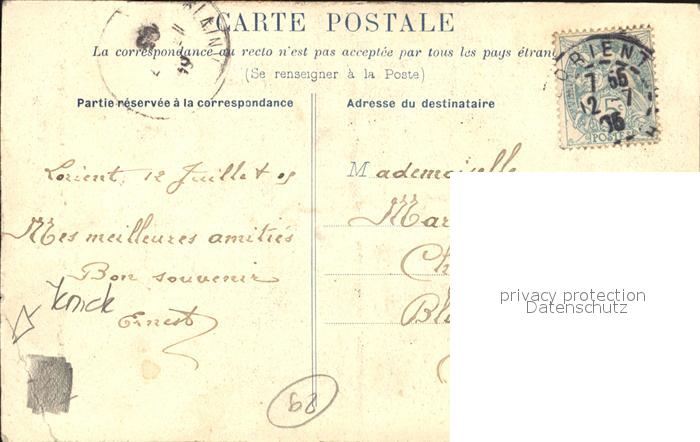 CARTE POSTALE
La correspondance au recto n'est pas acceptée par tous les pays étran
(Se renseigner à la Poste)
ORIENT
7 55
12 7
05
POSTES
Partie réservée à la correspondance
Adresse du destinataire
Lorient, 12 Juillet 05
Mes meilleures amitiés
Bon souvenir
Ernest
Knick
Mademoiselle
Mar
Ch
Bl
privacy protection
Datenschutz